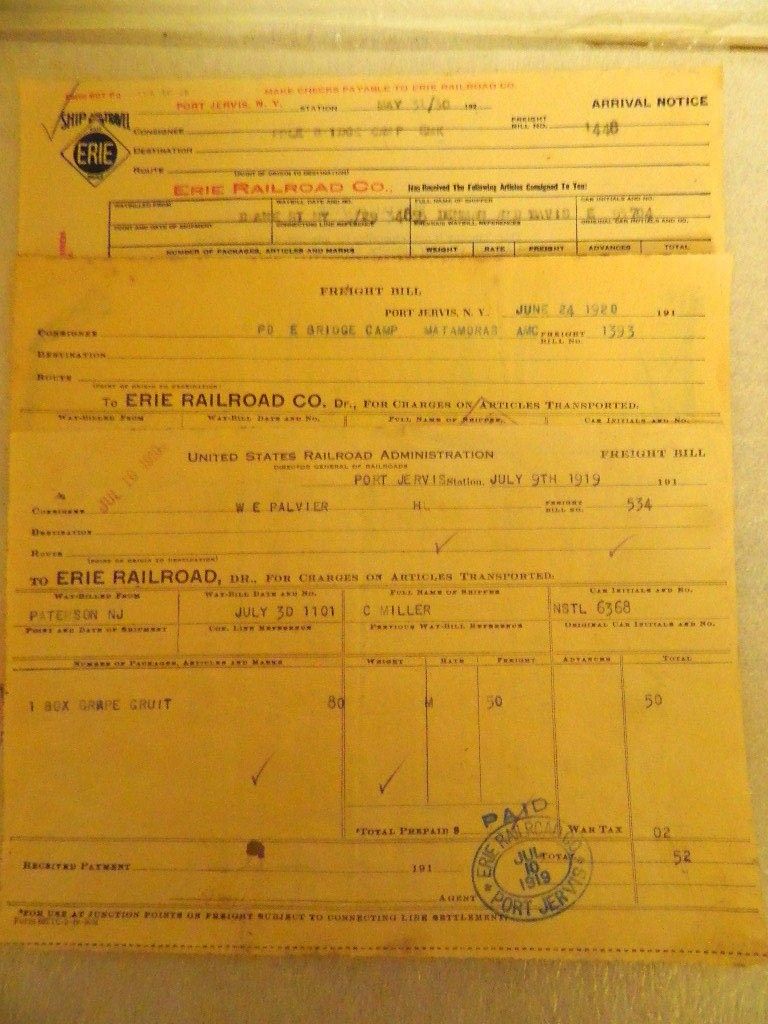 MAKE CHECKS PAYABLE TO ERIE RAILROAD CO.
PORT JERVIS, N. Y. STATION MAY 31/30 192
ARRIVAL NOTICE
SHIP AND TRAVEL
ERIE
CONSIGNEE CAMP FREIGHT BILL NO. 1448
DESTINATION
ROUTE
(POINT OF ORIGIN TO DESTINATION)
ERIE RAILROAD CO., Has Received The Following Articles Consigned To You:
WAYBILLED FROM WAYBILL DATE AND NO. FULL NAME OF SHIPPER CAR INITIALS AND NO.
DAVIS E
POINT AND DATE OF SHIPMENT CONNECTING LINE REFERENCE PREVIOUS WAYBILL REFERENCES ORIGINAL CAR INITIALS AND NO.
NUMBER OF PACKAGES, ARTICLES AND MARKS WEIGHT RATE FREIGHT ADVANCES TOTAL
FREIGHT BILL
PORT JERVIS, N. Y. JUNE 24 1920 191
CONSIGNEE PO E BRIDGE CAMP MATAMORAS AMC FREIGHT BILL NO. 1393
DESTINATION
ROUTE
(POINT OF ORIGIN TO DESTINATION)
To ERIE RAILROAD CO., DR., FOR CHARGES ON ARTICLES TRANSPORTED:
WAY-BILLED FROM WAY-BILL DATE AND NO. FULL NAME OF SHIPPER CAR INITIALS AND NO.
UNITED STATES RAILROAD ADMINISTRATION FREIGHT BILL
DIRECTOR GENERAL OF RAILROADS
PORT JERVIS Station, JULY 9TH 1919 191
CONSIGNEE W E PALVIER FREIGHT BILL NO. 534
DESTINATION
ROUTE
(POINT OF ORIGIN TO DESTINATION)
TO ERIE RAILROAD, DR., FOR CHARGES ON ARTICLES TRANSPORTED:
WAY-BILLED FROM WAY-BILL DATE AND NO. FULL NAME OF SHIPPER CAR INITIALS AND NO.
PATERSON NJ JULY 3D 1101 C MILLER NSTL 6368
POINT AND DATE OF SHIPMENT CON. LINE REFERENCE PREVIOUS WAY-BILL REFERENCE ORIGINAL CAR INITIALS AND NO.
NUMBER OF PACKAGES, ARTICLES AND MARKS WEIGHT RATE FREIGHT ADVANCES TOTAL
1 BOX GRAPE GRUIT 80 M 50 50
*TOTAL PREPAID $ WAR TAX 02
RECEIVED PAYMENT 191 TOTAL 52
AGENT
PAID
ERIE RAILROAD CO.
JUL 10 1919
PORT JERVIS
*FOR USE AT JUNCTION POINTS ON FREIGHT SUBJECT TO CONNECTING LINE SETTLEMENT.